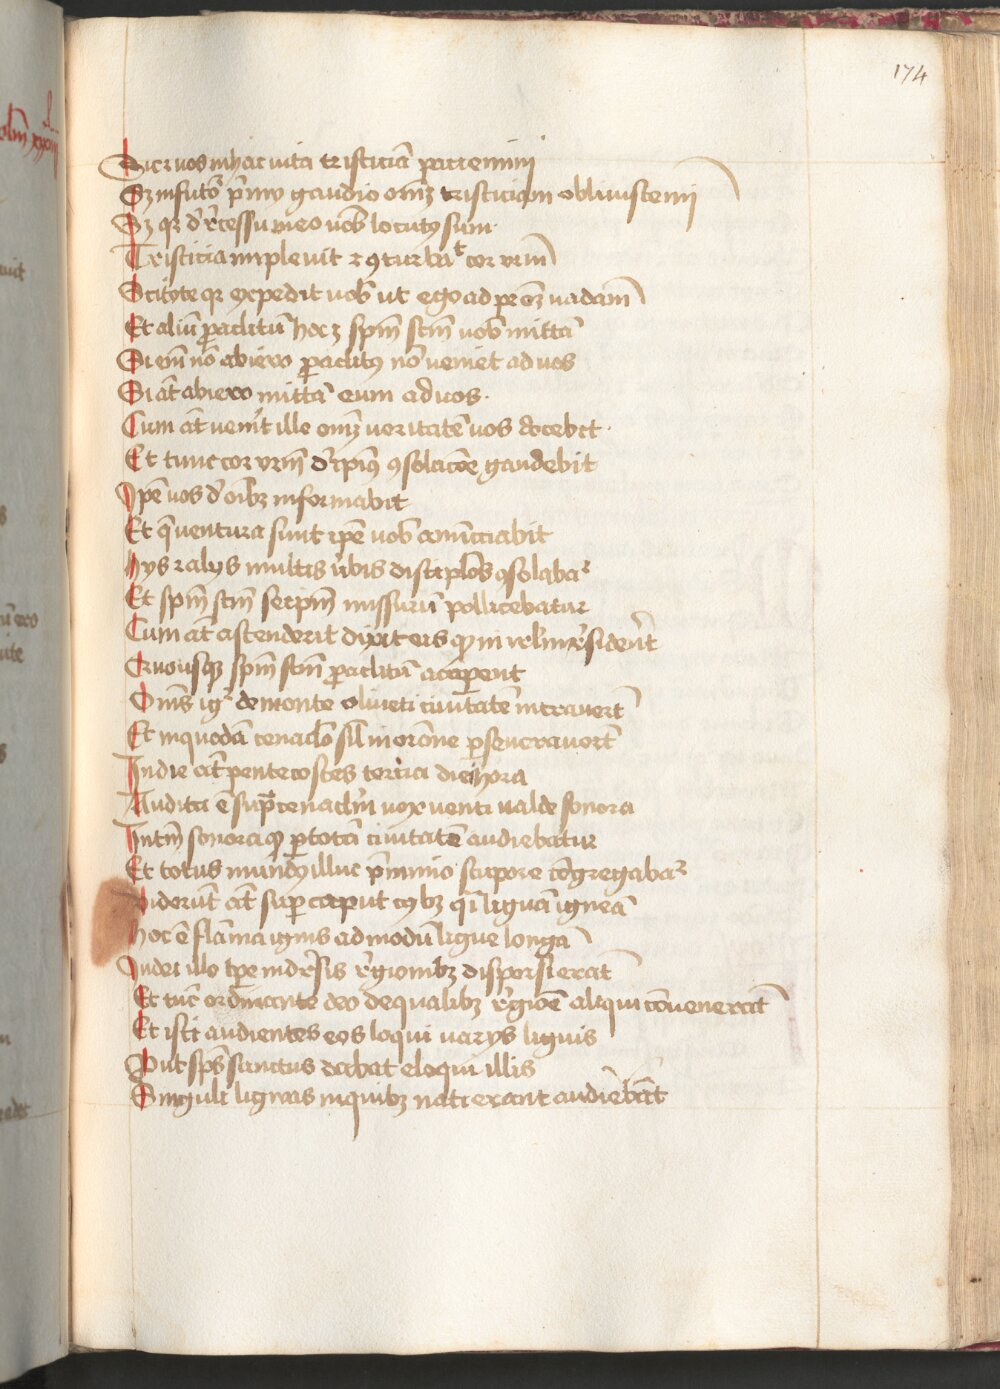 174
Sic et vos in hac vita tristiciā paciemini
Sz in futō p̄mio gaudio omēz tristiciam obliuiscemini
Sz qr d' r̄cessu meo uob locutꝯ sum
Tristicia impleuit et ꝯturbat cor vrm̄
Scitote qr expedit uob ut ego ad prēz uadam
Et aliū paclitū hoc ē spm̄ scm̄ uob mittā
Si em̄ nō abiero paclitꝯ nō veniet ad vos
Si at̄ abiero mittā eum ad uos.
Cum at̄ ven̄it ille omēz veritatē vos docebit.
Et tunc cor vrm̄ d' ipiꝰ ꝯsolacōe gaudebit
Ipē vos d' oībz informabit
Et q̄ ventura sunt ipē uob anūcciabit
hys et alys multis ūbis discīplos ꝯsolabat᷑
Et spm̄ scm̄ seipm̄ missurū pollicebatur
Cum at̄ ascenderit dixit eis qꝫ in irlm̄ r̄siderēt
Quousqꝫ spm̄ scm̄ paclitū acciperent
Om̄s igr̄ de monte oliueti ciuitatē intrauerūt
Et in quodā cenaclo sil' in orōne pseuerauerūt
In die at̄ pentecostes tercia diei hora
Audita ē sup̄ cenaclm̄ vox venti valde sonora
Intm̄ sonora qꝫ p totā ciuitatē audiebatur
Et totus mundꝯ illuc p̄ nimio stupore cōgregabat᷑
viderūt at̄ sup caput cuiꝯlibz q̄i liguā igneā
hoc ē flāma ignis ad modū ligue longa
Iudei illo tpe in diu̅sis r̄gionibz dispersi erāt
Et tūc ordinante deo de qualibz r̄gioē aliqui cōuenerāt
Et isti audientes eos loqui uarys liguis
Put sps̄ sanctus dabat eloqui illis
Singuli liguas in quibz nati erant audiebāt